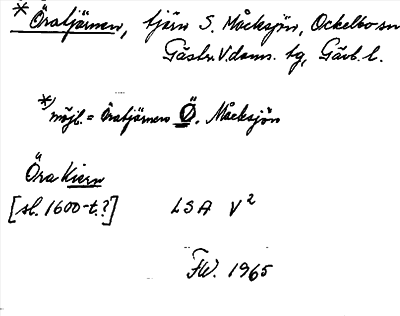 * Öratjärnen, tjärn S. Måcksjön, Ockelbo sn
Gästr. V. doms. tg, Gävb. l.
*) möjl. = Öratjärnen Ö. Måcksjön
Öra Kiern
[sl. 1600-t.?] LSA V²
FW. 1965